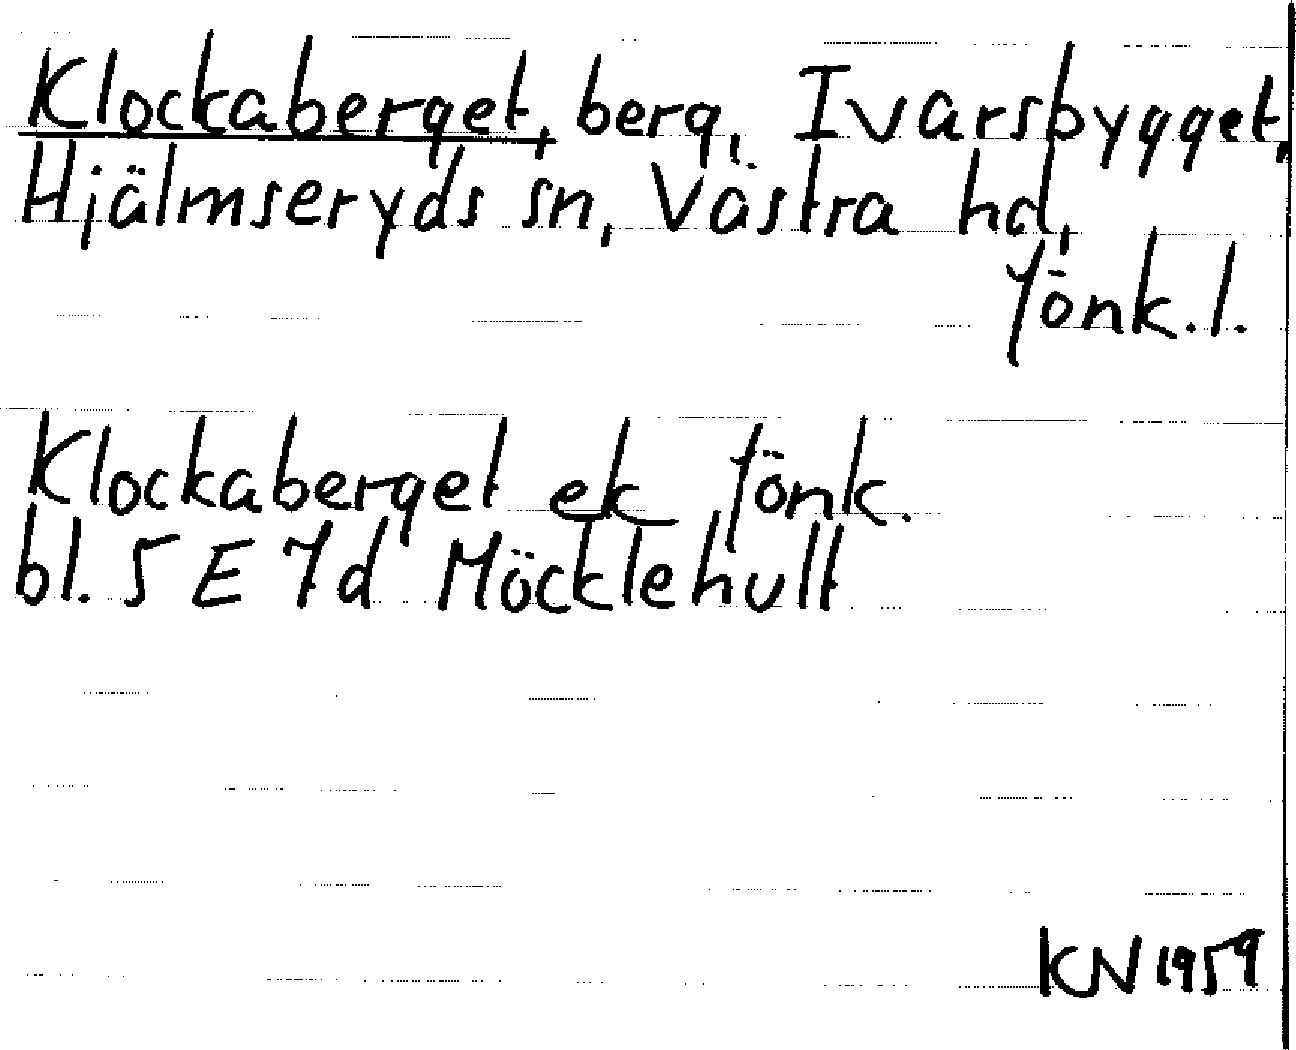 Klockaberget, berg, Ivarsbygget,
Hjälmseryds sn, Västra hd,
Jönk.l.
Klockaberget ek Jönk.
bl. 5 E 7d Möcklehult
KN 1959